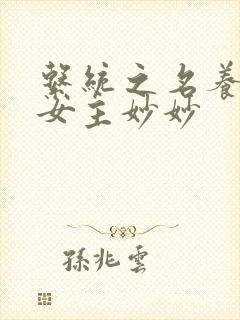 繫統之名養
女主妙妙
孫兆雲